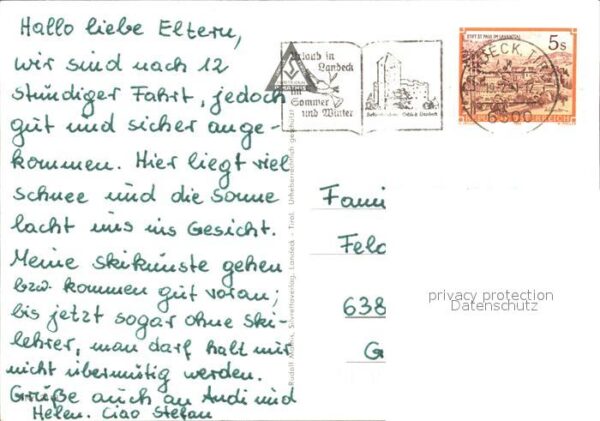 Hallo liebe Eltern,
wir sind nach 12
stündiger Fahrt, jedoch
gut und sicher ange-
kommen. Hier liegt viel
schnee und die sonne
lacht uns ins Gesicht.
Meine skikünste gehen
bzw. kommen gut voran;
bis jetzt sogar ohne Ski-
lehrer, man darf halt nur
nicht übermütig werden.
Grüße auch an Andi und
Helen. Ciao Stefan
Urlaub in
Landeck
im
Sommer
und Winter
STIFT ST. PAUL IM LAVANTTAL
5s
6500
Landeck - Tirol. Urheberrechtlich geschützt
Fami
Feld
638
G
privacy protection
Datenschutz